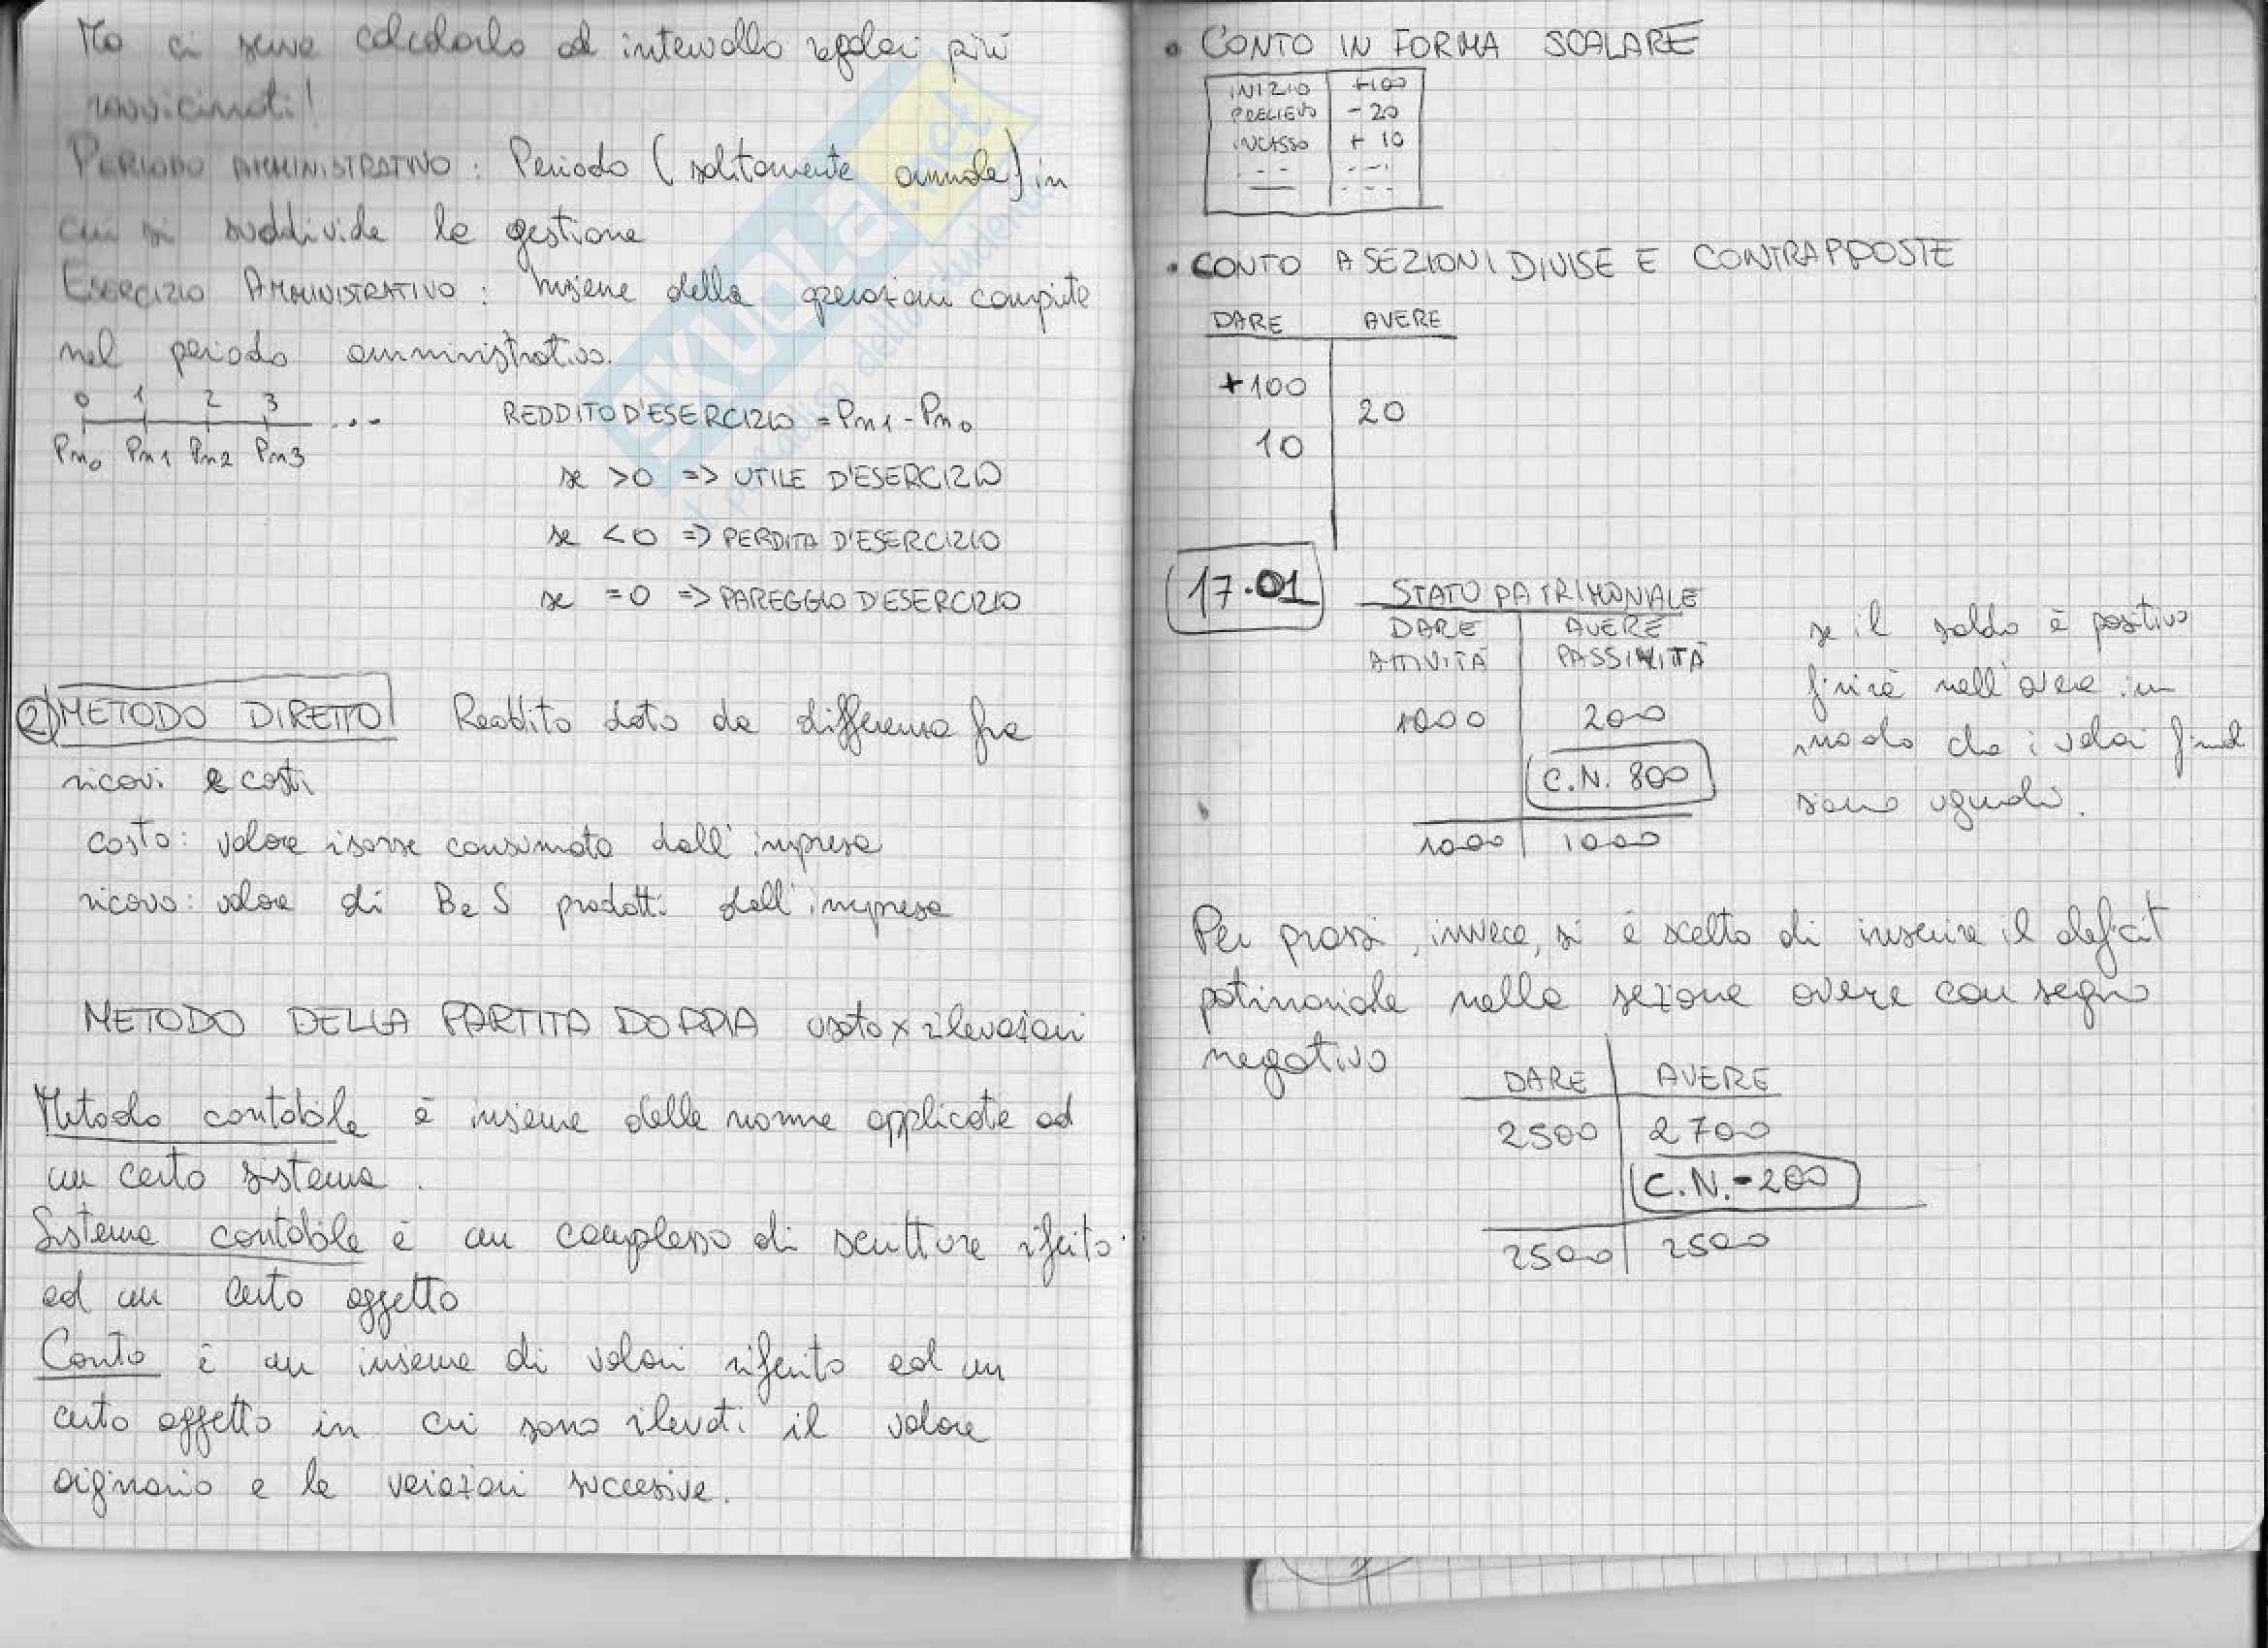 Ma ci serve calcolarlo ad intervallo regolari più
ravvicinati!
PERIODO AMMINISTRATIVO : Periodo (solitamente annuale) in
cui si suddivide la gestione
ESERCIZIO AMMINISTRATIVO : Insieme della operazioni compiute
nel periodo amministrativo.
0 1 2 3 ...
Pn0 Pn1 Pn2 Pn3
REDDITO D'ESERCIZIO = Pn1 - Pn0
se >0 => UTILE D'ESERCIZIO
se <0 => PERDITA D'ESERCIZIO
se =0 => PAREGGIO D'ESERCIZIO
2) METODO DIRETTO Reddito dato da differenza fra
ricavi e costi
costo: valore risorse consumate dall'impresa
ricavo: valore di B e S prodotti dall'impresa
METODO DELLA PARTITA DOPPIA usato x rilevazioni
Metodo contabile è insieme delle norme applicate ad
un certo sistema.
Sistema contabile è un complesso di scritture riferito
ad un certo oggetto
Conto è un insieme di valori riferito ad un
certo oggetto in cui sono rilevati il valore
originario e le variazioni successive.
• CONTO IN FORMA SCALARE
INIZIO +100
PRELIEVO - 20
INCASSO + 10
• CONTO A SEZIONI DIVISE E CONTRAPPOSTE
DARE AVERE
+100
20
10
17.01
STATO PATRIMONIALE
DARE AVERE
ATTIVITÀ PASSIVITÀ
1000 200
C.N. 800
1000 1000
se il saldo è positivo
finirà nell'avere in
modo che i valori finali
siano uguali.
Per prassi, invece, si è scelto di inserire il deficit
patrimoniale nella sezione avere con segno
negativo
DARE AVERE
2500 2700
C.N. -200
2500 2500
SKUOLA.net
il paradiso dello studente